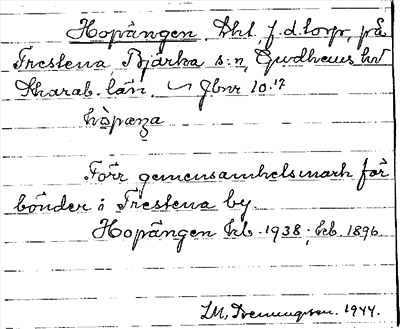 Hopängen, Dkl, f.d. torp, på
Trestena, Bjärka s:n, Gudhems hd
Skarab. län. ~ Jbnr 10.17
hὼpæŋa
Förr gemensamhetsmark för
bönder i Trestena by.
Hopängen kb. 1938; kb. 1896.
1944.